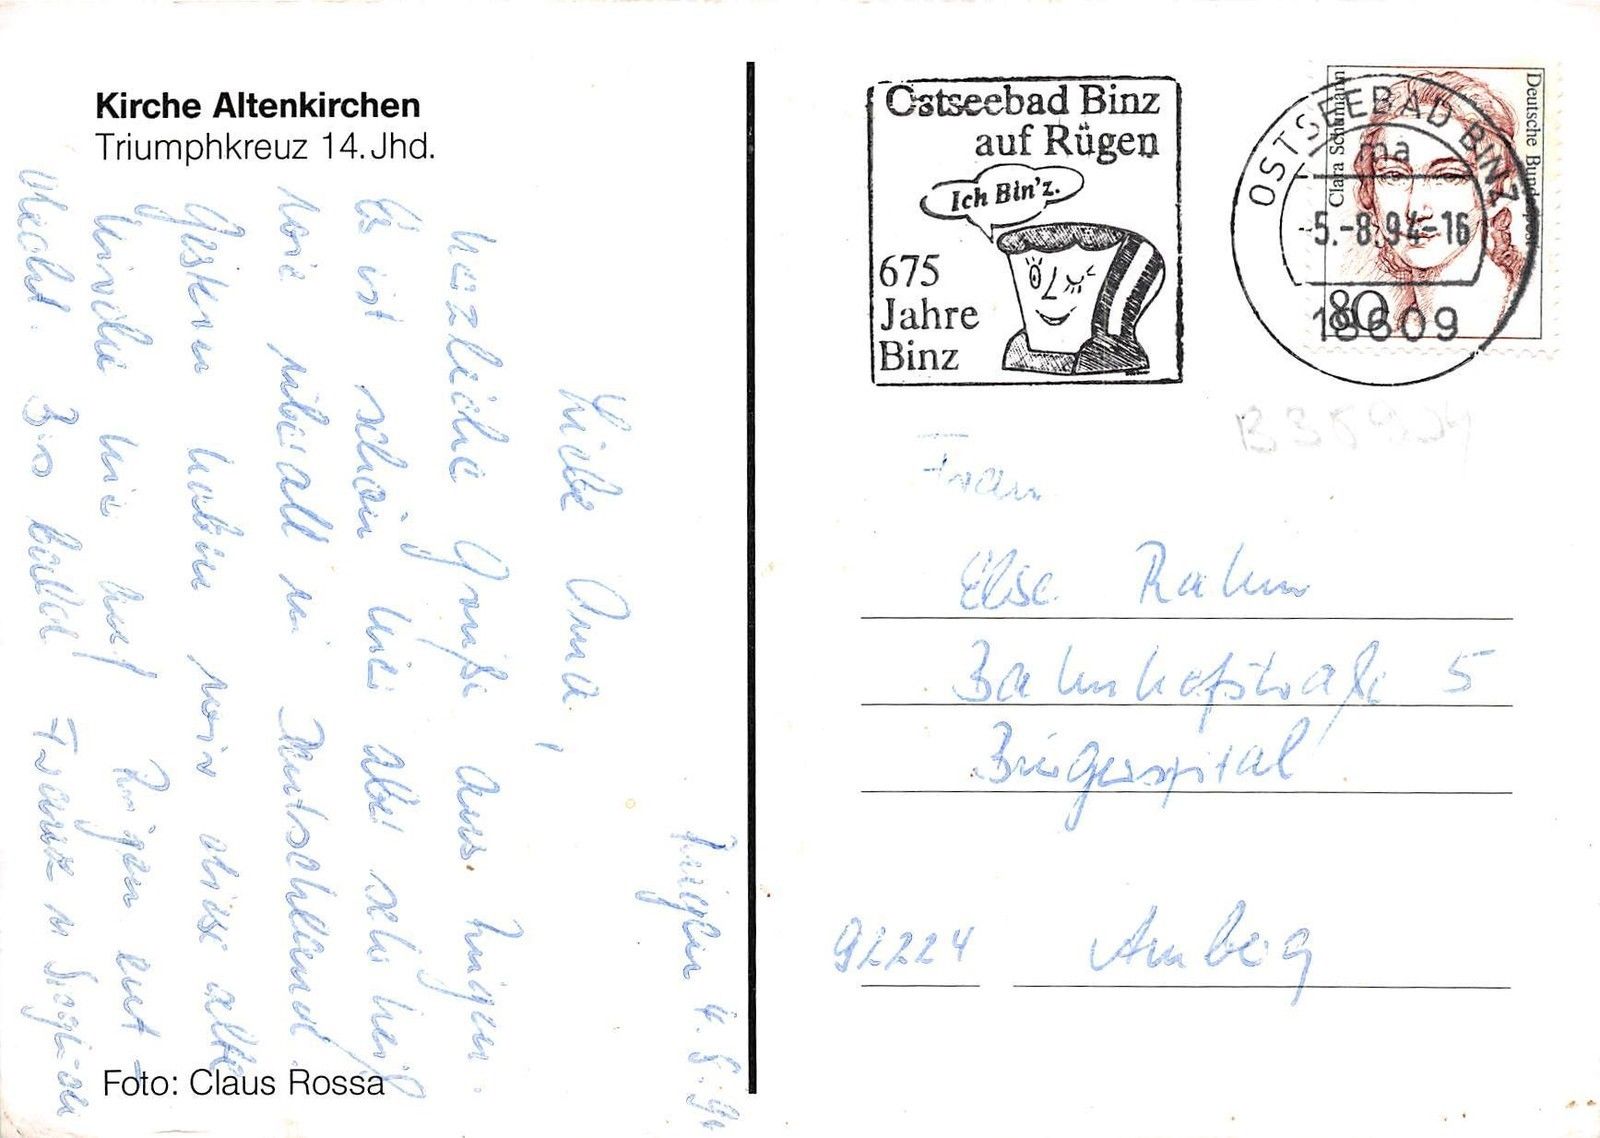 Kirche Altenkirchen
Triumphkreuz 14. Jhd.
Rügen 4. 8. 94
Liebe Oma,
herzliche Grüße aus Rügen.
Es ist schön hier aber sehr heiß
wie überall in Deutschland.
Gestern haben wir diese alte
Kirche hier auf Rügen ent-
deckt. Bis bald Franz u
Foto: Claus Rossa
Ostseebad Binz
auf Rügen
Ich Bin'z.
675
Jahre
Binz
OSTSEEBAD BINZ
ma
-5.-8.94-16
18609
Deutsche Bundespost
Clara Schumann
80
Frau
Else Rahm
Bahnhofstraße 5
Bürgerspital
92224 Amberg